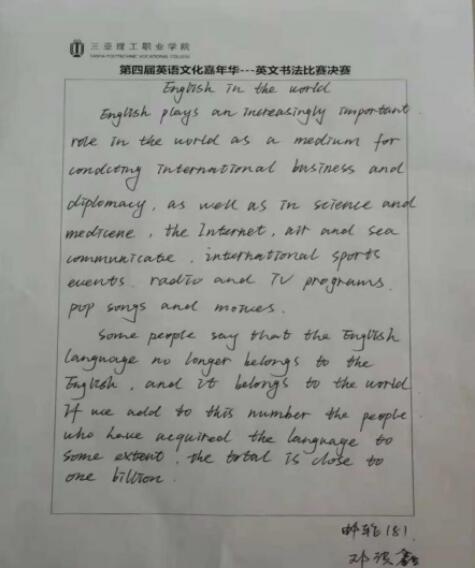 三亚理工职业学院
SANYA POLYTECHNIC VOCATIONAL COLLEGE
第四届英语文化嘉年华---英文书法比赛决赛
English in the world
English plays an increasingly important
role in the world as a medium for
condcting international business and
diplomacy, as well as in science and
medicene, the Internet, air and sea
communicate, international sports
events, radio and TV programs,
pop songs and movies.
Some people say that the English
language no longer belongs to the
English, and it belongs to the world
If we add to this number the people
who have acquired the language to
some extent, the total is close to
one billion.
邮轮181
邓